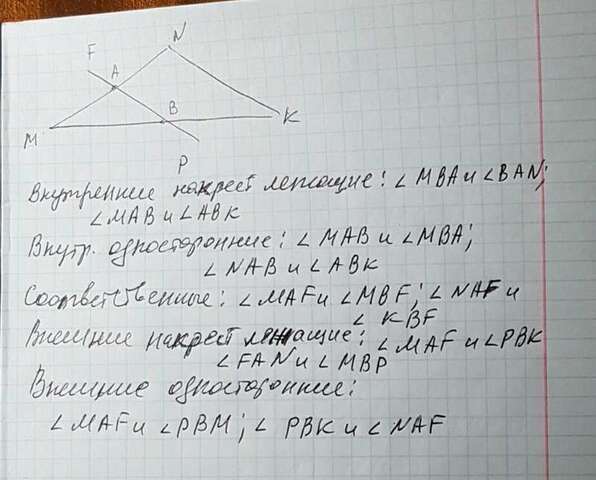 N
F
A
B
M
K
P
Внутренние накрест лежащие: ∠MBA и ∠BAN;
∠MAB и ∠ABK
Внутр. односторонние: ∠MAB и ∠MBA;
∠NAB и ∠ABK
Соответственные: ∠MAF и ∠MBF; ∠NAF и
∠KBF
Внешние накрест лежащие: ∠MAF и ∠PBK
∠FAN и ∠MBP
Внешние односторонние:
∠MAF и ∠PBM; ∠PBK и ∠NAF